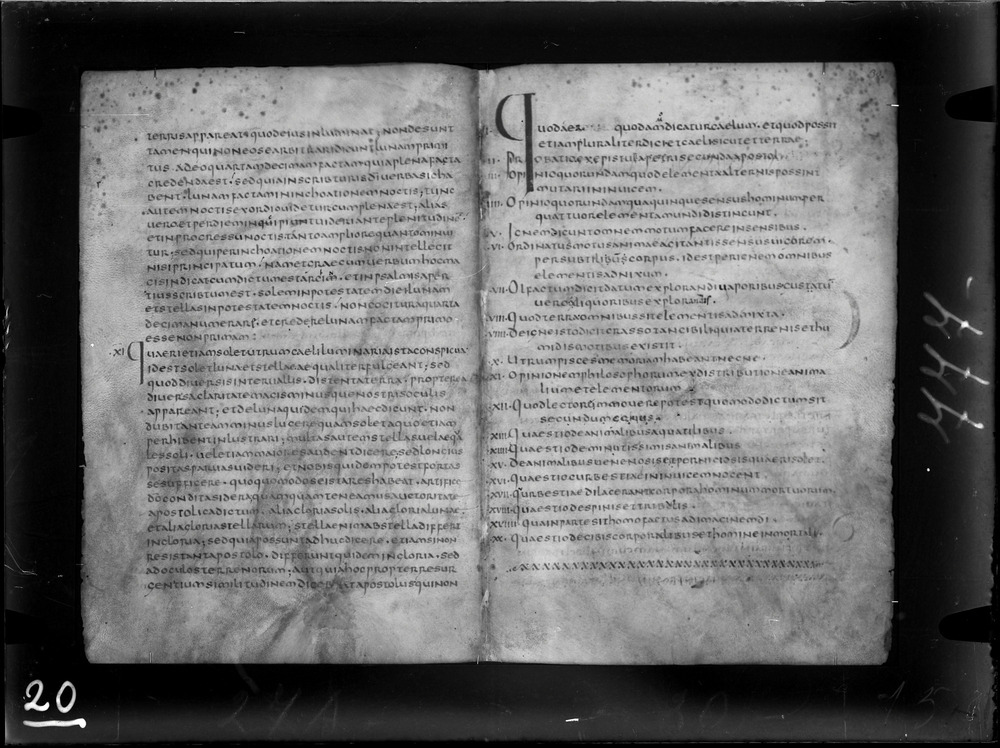 terris appareat quod eius inluminat; non desunt
tamen qui non eos arbitrari dicant lunam primi
tus. adeo quartam decimam factam quia plena facta
credenda est. sed quia in scribturis diuerba sic ha
bent. lunam factam in inchoationem noctis; tunc
autem noctis exordio uidetur cum plena est; alias
uero et per diem inquipiunt uideri ante plenitudine
et in processu noctis tanto amplio re quanto minui
tur. sed qui per inchoationem noctis non intellecit
nisi principatum. nam et graecum uerbum hoc ma
cis indicat cum dictum est archin. et in psalmis aper
tius scribtum est. solem in potestatem diei lunam
et stellas in potestatem noctis. non cocitur a quarta
decima numerare. et credere lunam factam primo
esse non primam:
XI Quaeri etiam solet utrum caeli luminaria ista conspicua
id est sol et luna et stellae aequaliter fulceant; sed
quod diuersis interuallis. distent a terra. propterea
diuersa claritate macis minusque nostris oculis
appareant; et de luna quidem qui haec dicunt. non
dubitant eam minus lucere quam solet a quo etiam
perhibent inlustrari; multas autem stellas uel aequa
les soli. uel etiam maiores audent dicere sed loncius
positas paruas uideri; et nobis quidem potest fortas
se sufficere. quoquo modo se ista res habeat. artifice
do condita sidera quamquam teneamus auctoritate
apostolica dictum. alia cloria solis. alia cloria lunae
et alia cloria stellarum; stella enim ab stella differt
in cloria; sed quia possunt adhuc dicere. etiam si non
resistant apostolo. differunt quidem in cloria. sed
ad oculos terrenorum; aut quia hoc propter resur
gentium similitudinem dicebat apostolus qui non
I. Quod aer quoque dicatur caelum. et quod possit
etiam pluraliter dici et caeli sicut et terrae
II. Probatio ex epistula petri secunda apostoli
III. Opinio quorundam quod elementa alternis possint
mutari in inuicem.
IIII. Opinio quorundam qua quinque sensus hominum per
quattuor elementa mundi distincunt.
V. Ignem dicunt omnem motum facere in sensibus.
VI. Ordinatus motus animae acitantis sensus in corem.
per subtilius corpus. id est per ignem omnibus
elementis ad nixum.
VII. Olfactum dicit datum explorandi uaporibus custatum
uero liquoribus explorandis.
VIII. Quod terra omnibus sit elementis ad mixta.
VIIII. De igne isto dici crasso tancibili quia terreni set hu
midis motibus existit.
X. Utrum pisces memoriam habeant necne.
XI. Opinionem philosophorum ex distributione anima
lium et elementorum
XII. Quod lectorem mouere potest quomodo dictum sit
secundum genus.
XIII. Quaestio de animalibus aquatilibus.
XIIII. Quaestio de minutissimis animalibus
XV. De animalibus uenenosis et perniciosis quaeri solet.
XVI. Quaestio cur bestiae inuicem nocent
XVII. Cur bestiae dilacerant corpora hominum mortuorum
XVIII. Quaestio de spinis et tribulis.
XVIIII. Qua in parte sit homo factus ad imacinem di.
XX. Quaestio de cibis corporalibus et homine inmortali.
20